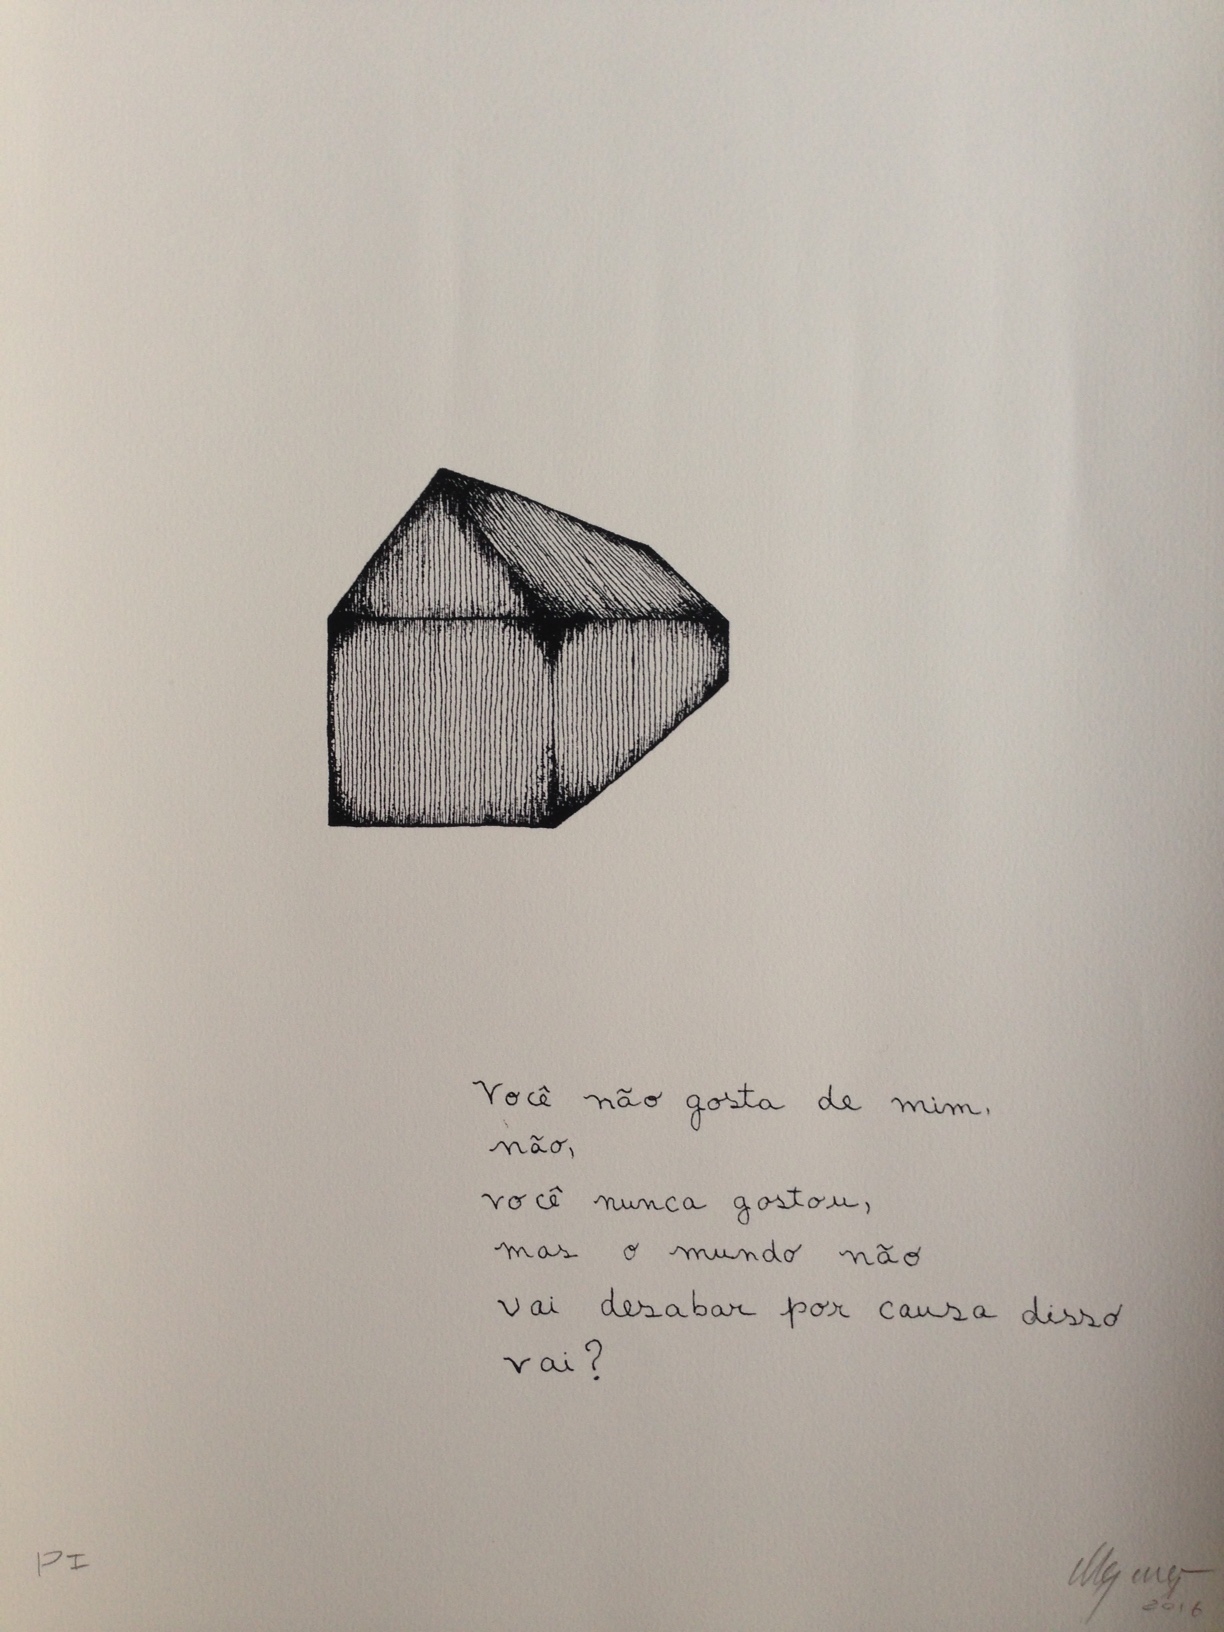 Você não gosta de mim.
não,
você nunca gostou,
mas o mundo não
vai desabar por causa disso
vai?
PI
2016